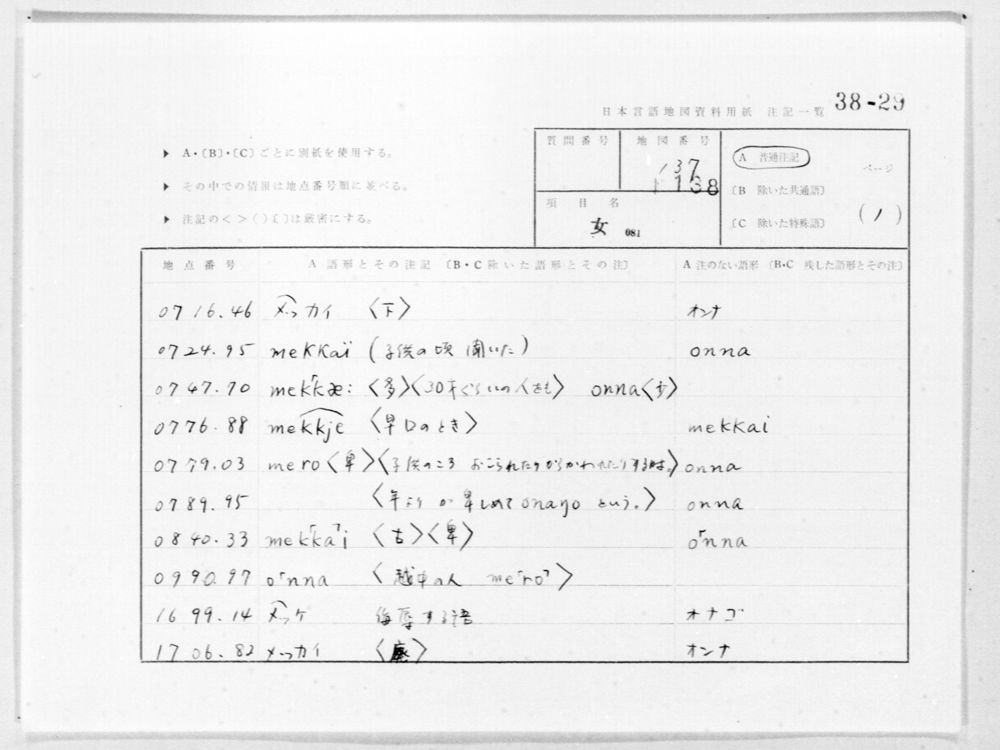 日本言語地図資料用紙 注記一覧 38-29
▶ A・〔B〕・〔C〕ごとに別紙を使用する。
▶ その中での情報は地点番号順に並べる。
▶ 注記の< >( )〔 〕は厳密にする。
質問番号 地図番号
137
138
項目名
女 081
A 普通注記
〔B 除いた共通語〕
〔C 除いた特殊語〕
ページ
(1)
地点番号 A 語形とその注記〔B・C 除いた語形とその注〕 A 注のない語形〔B・C 残した語形とその注〕
0716.46 メッカイ 〈下〉 オンナ
0724.95 mekkaï (子供の頃 聞いた) onna
0747.70 mek「kæ: 〈多〉〈30才ぐらいの人をも〉 onna〈少〉
0776.88 mekkje 〈早口のとき〉 mekkai
0779.03 mero〈卑〉〈子供のころ おこられたりからかわれたりする時は。〉 onna
0789.95 〈年より が 卑しめて onago という。〉 onna
0840.33 mek「ka」i 〈古〉〈卑〉 o「nna
0990.97 o「nna 〈越中の人 me「ro」〉
1699.14 メッケ 侮辱する語 オナゴ
1706.82 メッカイ 〈廃〉 オンナ